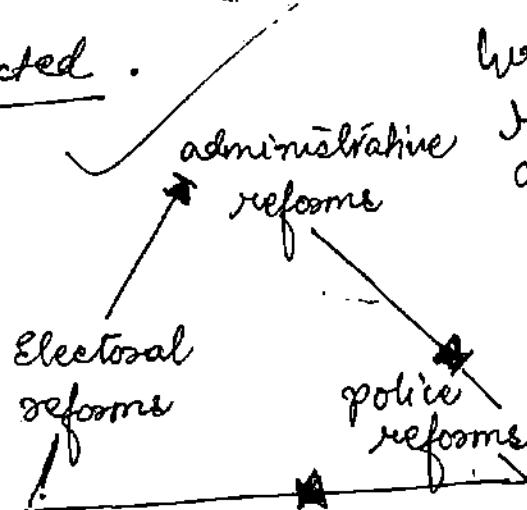 administrative
reforms
Electoral
reforms
police
reforms